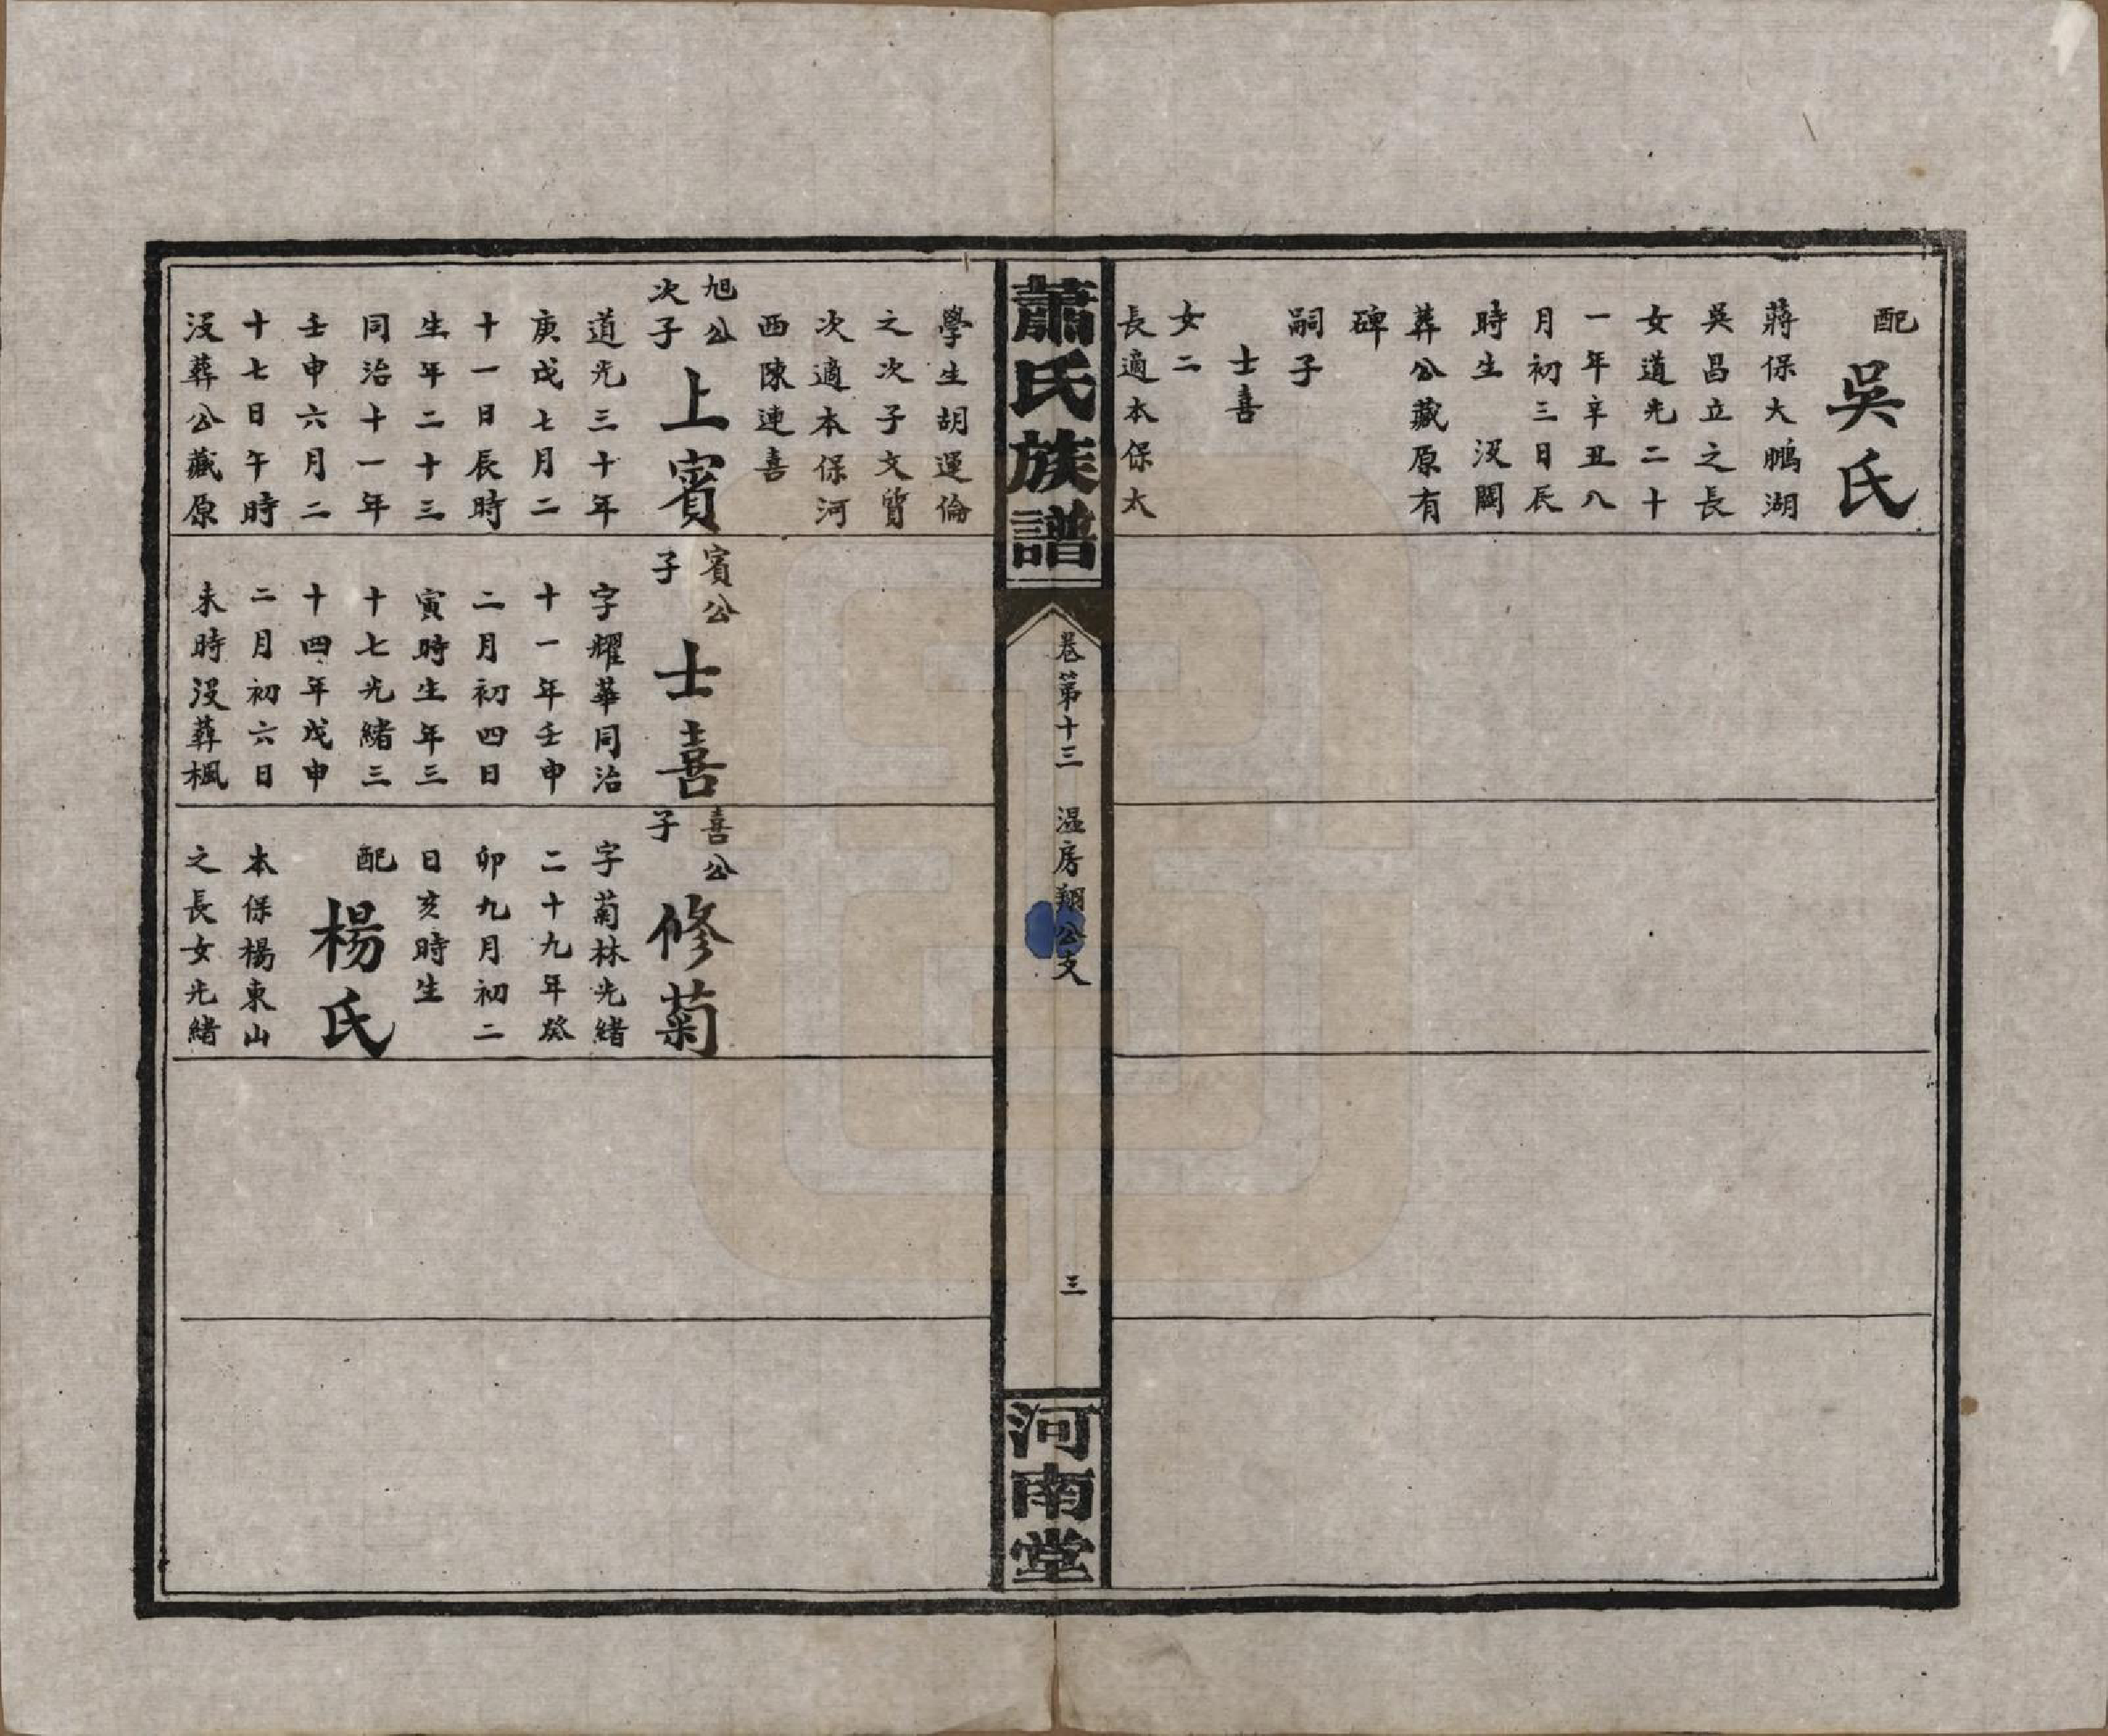 配吳氏
蔣保大鵬湖
吳昌立之長
女道光二十
一年辛丑八
月初三日辰
時生 沒闕
葬公藏原有
碑
嗣子
士喜
女二
長適本保太
蕭氏族譜
卷第十三 溫房翔公支
三
河南堂
學生胡運倫
之次子文質
次適本保河
西陳連喜
旭公
次子
上賓
道光三十年
庚戌七月二
十一日辰時
生年二十三
同治十一年
壬申六月二
十七日午時
沒葬公藏原
賓公
子
士喜
字耀華同治
十一年壬申
二月初四日
寅時生年三
十七光緒三
十四年戊申
二月初六日
未時沒葬楓
喜公
子
修菊
字菊林光緒
二十九年癸
卯九月初二
日亥時生
配楊氏
本保楊東山
之長女光緒